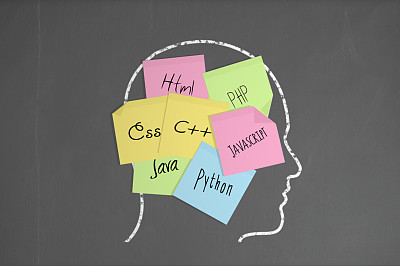 Html
PHP
Css
C++
JAVASCRIPT
Java
Python